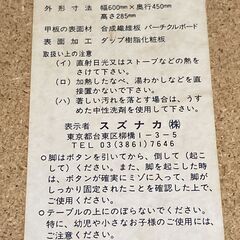 外形寸法 幅600mm×奥行450mm
高さ285mm
甲板の表面材 合成繊維板 パーチクルボード
表面加工 ダップ樹脂化粧板
取扱い上の注意
(イ) 直射日光又はストーブなどの熱を
さけて下さい。
(ロ) 加熱したなべ、湯わかしなどを直
接置かないで下さい。
(ハ) 著しい汚れを落とす場合は、うす
めた中性洗剤を使用して下さい。
表示者 スズナカ(株)
東京都台東区柳橋1-3-5
TEL 03(3861)7646
○脚はボタンを引いてから、倒して「起こし
て」ください。また、脚を起こした時
は、ボタンが確実にミゾに入って、脚が
しっかり固定されたことを確認した上で、
ご使用ください。
○テーブルの上にのぼらないでください。
特に、幼児や小さなお子様のご使用には、
ご注意ください。